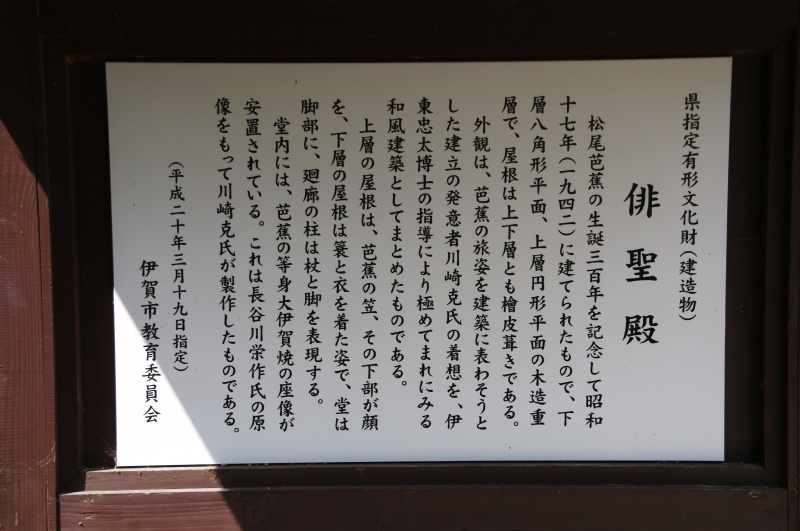 県指定有形文化財(建造物)
俳聖殿
松尾芭蕉の生誕三百年を記念して昭和
十七年(一九四二)に建てられたもので、下
層八角形平面、上層円形平面の木造重
層で、屋根は上下層とも檜皮葺きである。
外観は、芭蕉の旅姿を建築に表わそうと
した建立の発意者川崎克氏の着想を、伊
東忠太博士の指導により極めてまれにみる
和風建築としてまとめたものである。
上層の屋根は、芭蕉の笠、その下部が顔
を、下層の屋根は蓑と衣を着た姿で、堂は
脚部に、廻廊の柱は杖と脚を表現する。
堂内には、芭蕉の等身大伊賀焼の座像が
安置されている。これは長谷川栄作氏の原
像をもって川崎克氏が製作したものである。
(平成二十年三月十九日指定)
伊賀市教育委員会